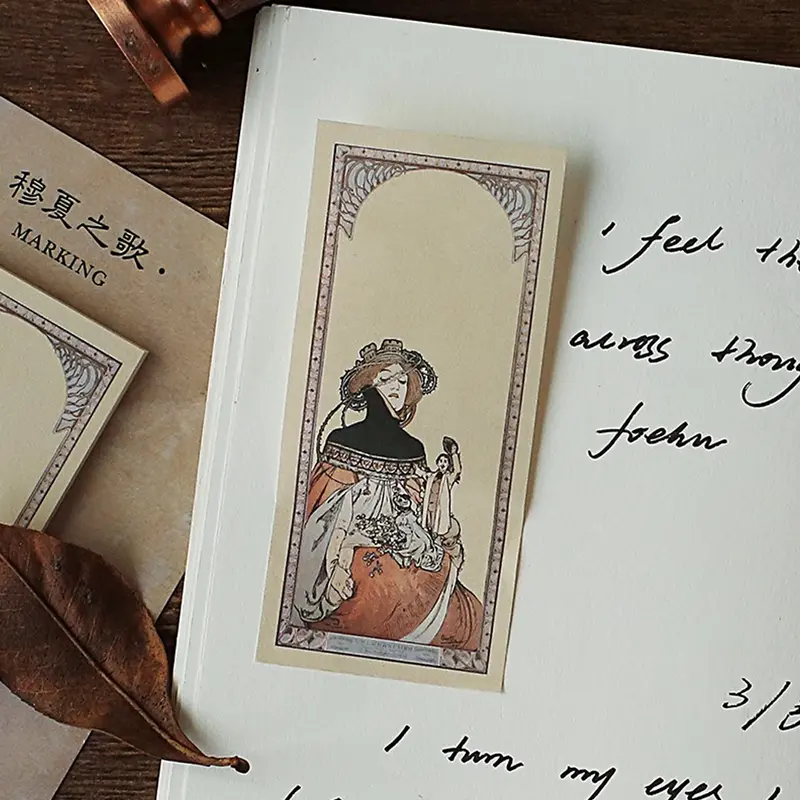 穆夏之歌.
MARKING
I feel the
across
foehn
3/3
I turn my eyes